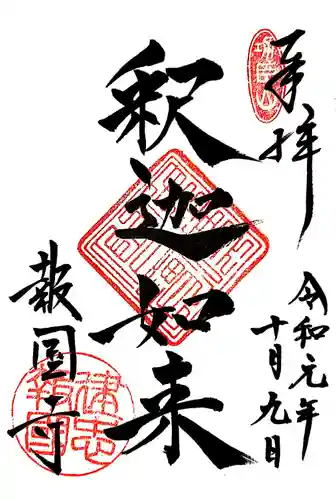 奉拝
令和元年
十月九日
釈迦如来
報国寺